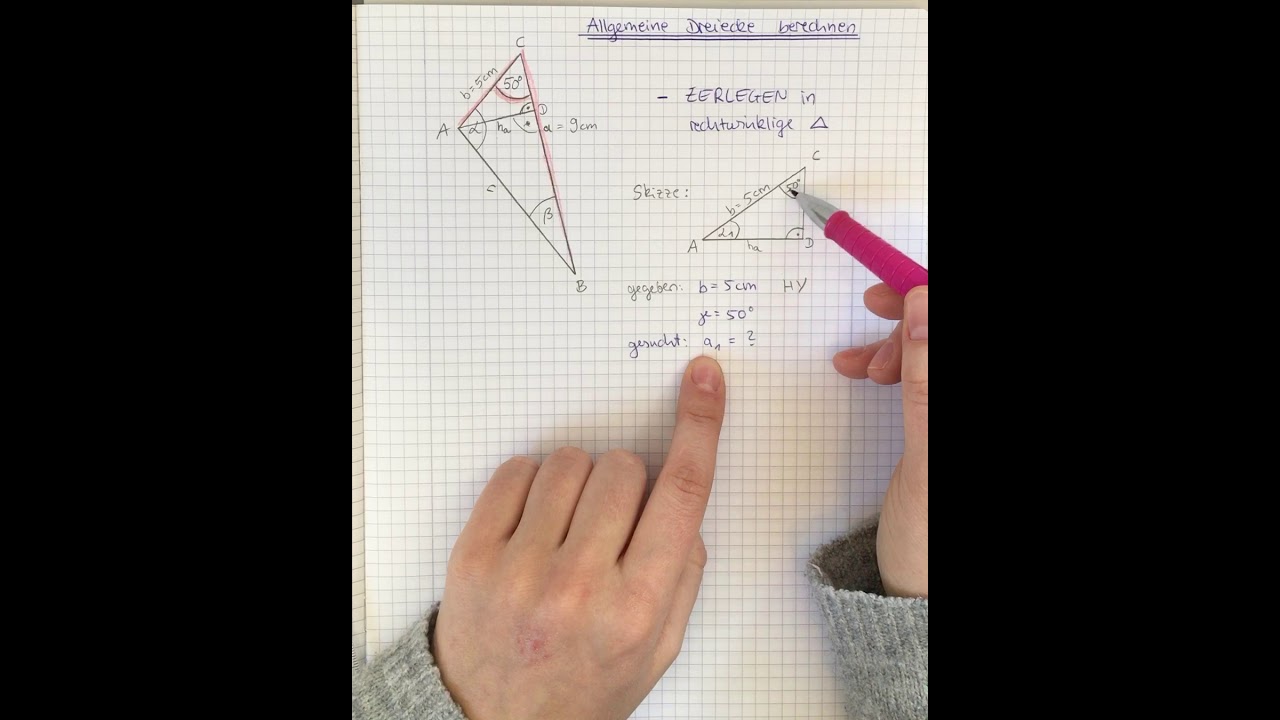 Allgemeine Dreiecke berechnen
C
b = 5cm
50°
D
A
α
ha
a = 9cm
c
β
B
- ZERLEGEN in
rechtwinklige △
Skizze:
C
50°
b = 5cm
A
α₁
ha
D
gegeben: b = 5cm HY
γ = 50°
gesucht: a₁ = ?